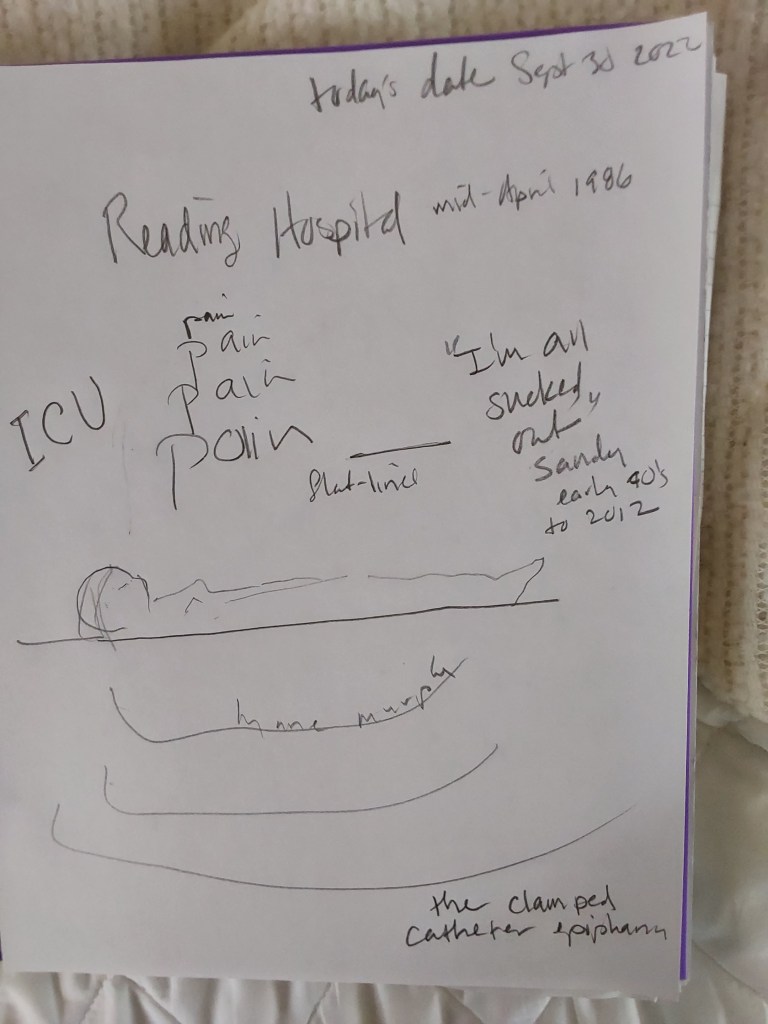 today's date Sept 3d 2022
Reading Hospital mid-April 1986
pain
Pain
Pain
Pain
ICU
flat-line
"I'm all
sucked
out"
Sandy
early 40's
to 2012
lynne murphy
the clamped
catheter epiphany